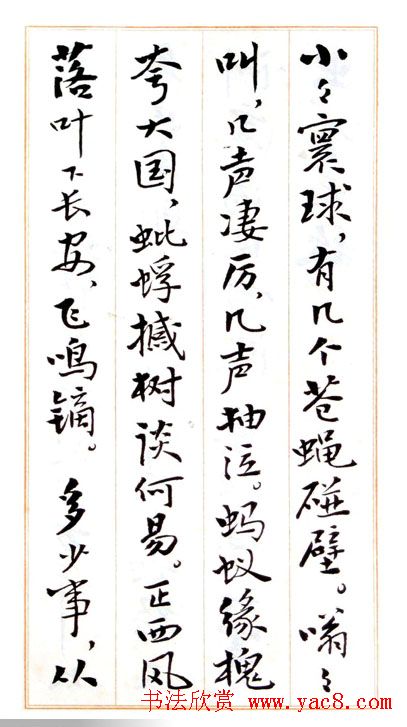 小々寰球,有几个苍蝇碰壁。嗡々
叫,几声凄厉,几声抽泣。蚂蚁缘槐
夸大国,蚍蜉撼树谈何易。正西风
落叶下长安,飞鸣镝。多少事,从
书法欣赏 www.yac8.com